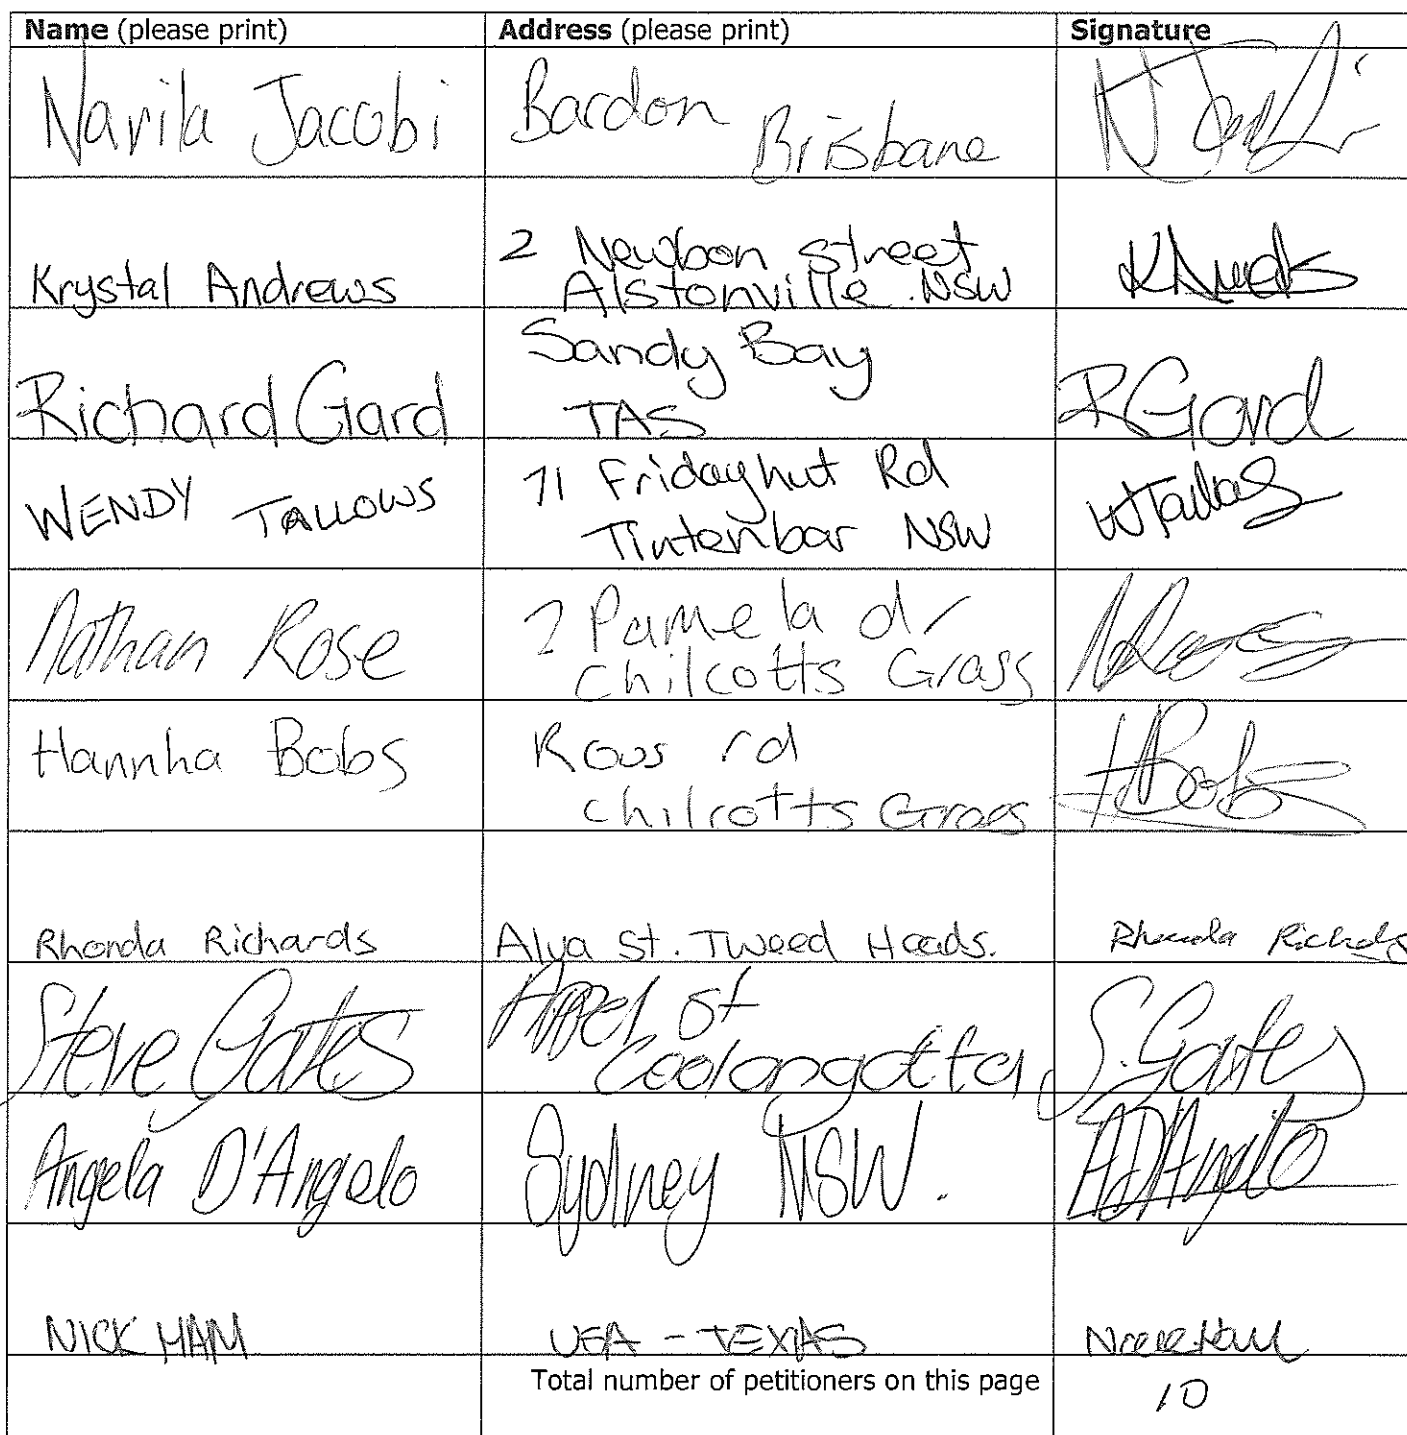 Name (please print) Address (please print) Signature
Navila Jacobi Bardon
Brisbane
N Jacobi
Krystal Andrews 2 Newbon street
Alstonville. NSW
Richard Gard Sandy Bay
TAS
R Gard
WENDY TALLOWS 71 Fridayhut Rd
Tintenbar NSW
WTallows
Nathan Rose 2 Pamela dr
Chilcotts Grass
Hannha Bobs Rous rd
Chilcotts Grass
HBobs
Rhonda Richards Alya St. Tweed Heads. Rhonda Richards
Steve Gates Appel st
Coolangatta
S. Gates
Angela D'Angelo Sydney NSW. ADAngelo
NICK HAM USA - TEXAS
Total number of petitioners on this page 10